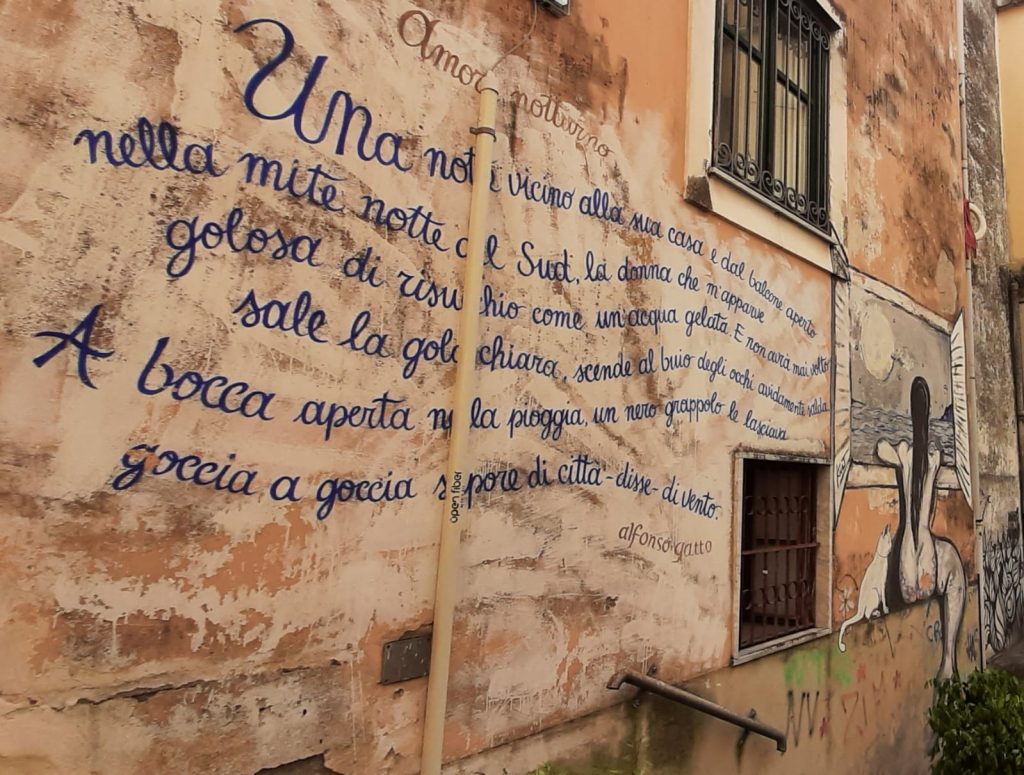 Amor notturno
Una notte vicino alla sua casa e dal balcone aperto
nella mite notte del Sud, la donna che m'apparve
golosa di risucchio come un'acqua gelata. E non avrà mai volto
sale la gola chiara, scende al buio degli occhi avidamente
A bocca aperta nella pioggia, un nero grappolo le lasciava
goccia a goccia sapore di città - disse - di vento.
alfonso gatto
open fiber
CR